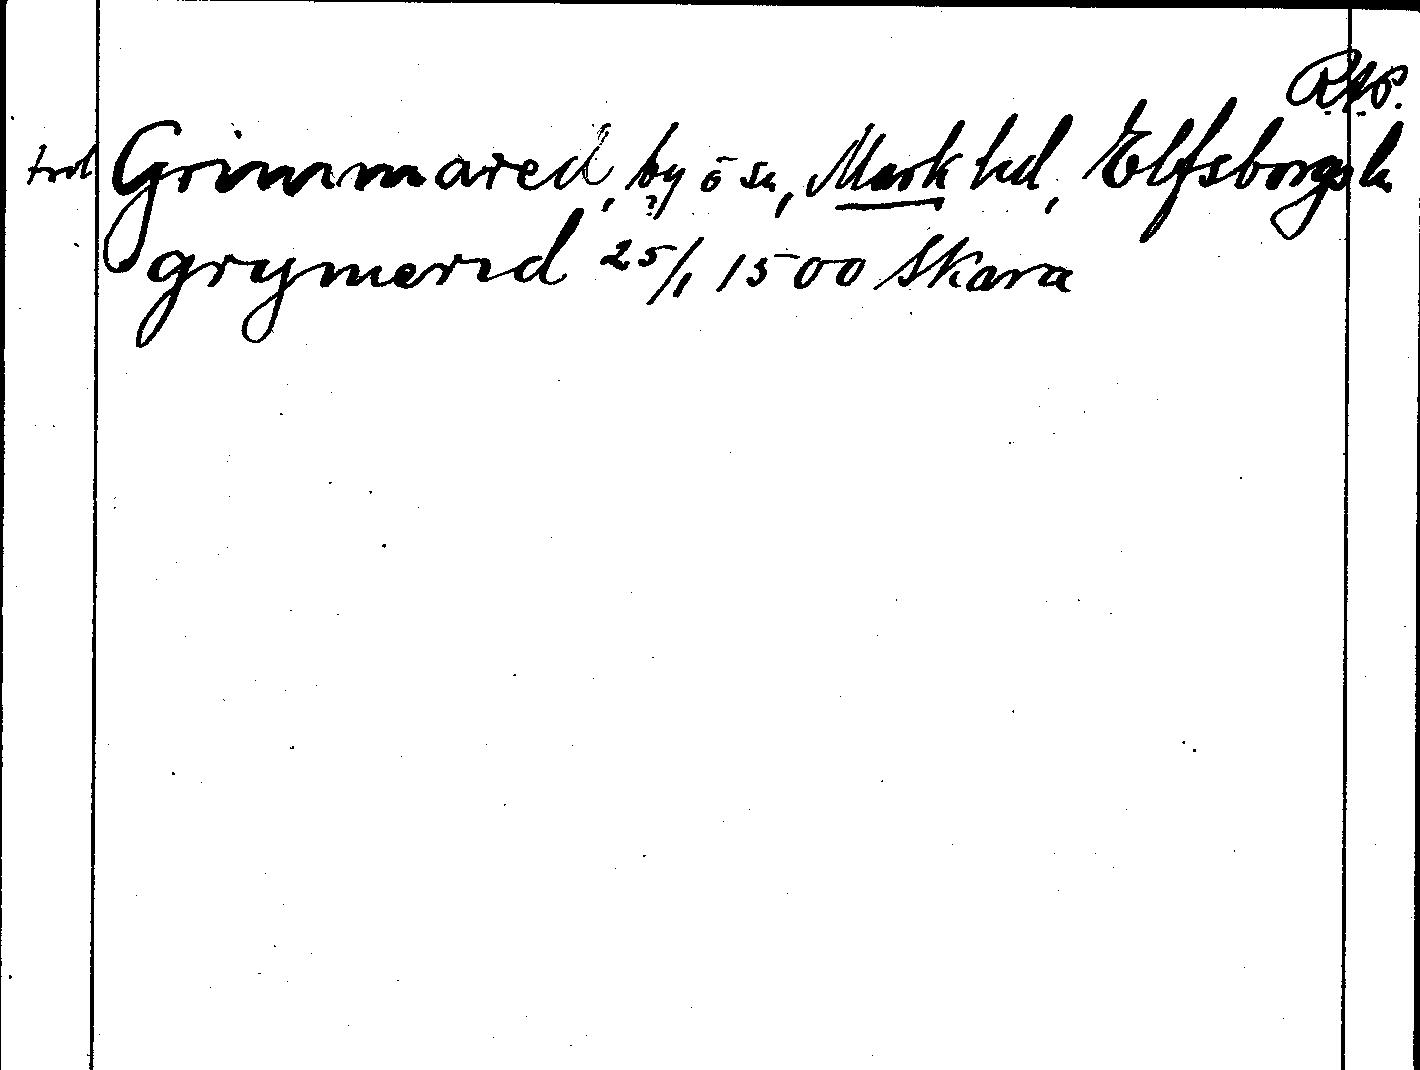 RAP.
trol Grimmared, by ö sn, Mark hd, Elfsborgs ln
?
grymerid 25/1 1500 Skara